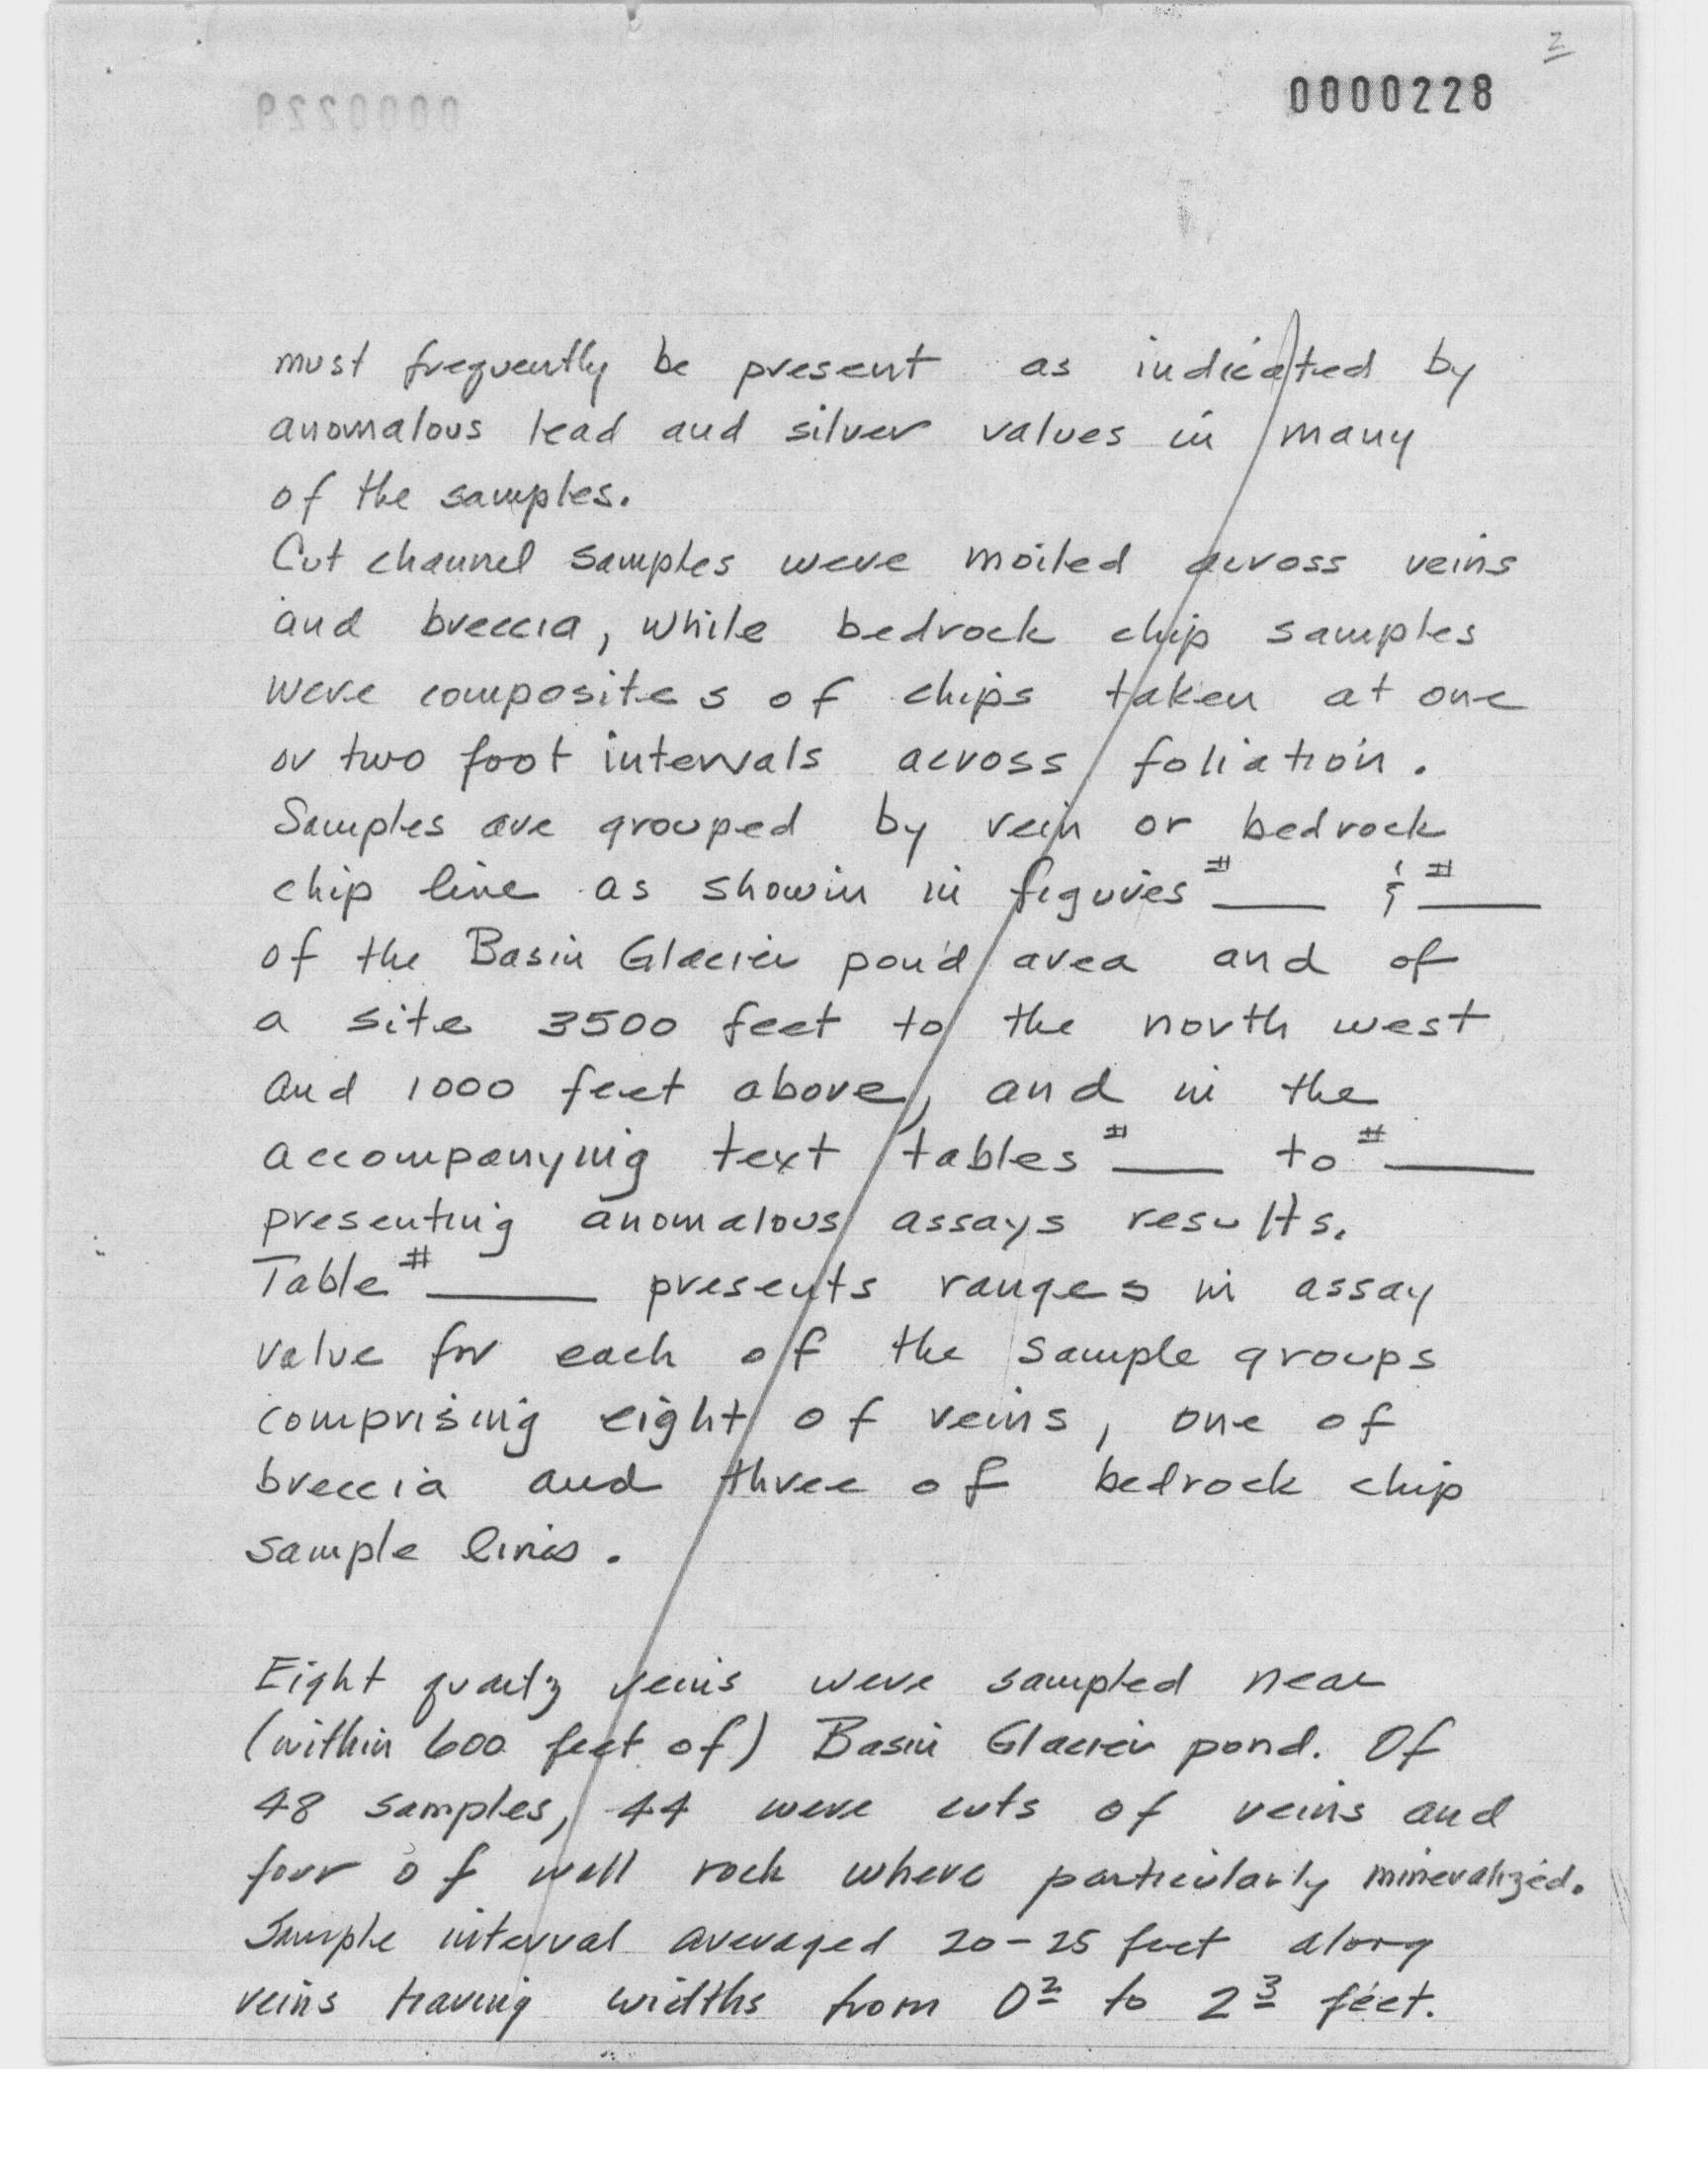 2
0000228
0000229
must frequently be present as indicated by
anomalous lead and silver values in many
of the samples.
Cut channel samples were moiled across veins
and breccia, while bedrock chip samples
were composites of chips taken at one
or two foot intervals across foliation.
Samples are grouped by vein or bedrock
chip line as showin in figures #____ & #____
of the Basin Glacier pond area and of
a site 3500 feet to the north west
and 1000 feet above, and in the
accompanying text tables #____ to #____
presenting anomalous assays results.
Table #____ presents ranges in assay
value for each of the sample groups
comprising eight of veins, one of
breccia and three of bedrock chip
sample lines.
Eight quartz veins were sampled near
(within 600 feet of) Basin Glacier pond. Of
48 samples, 44 were cuts of veins and
four of wall rock where particularly mineralized.
Sample interval averaged 20-25 feet along
veins having widths from 0² to 2³ feet.